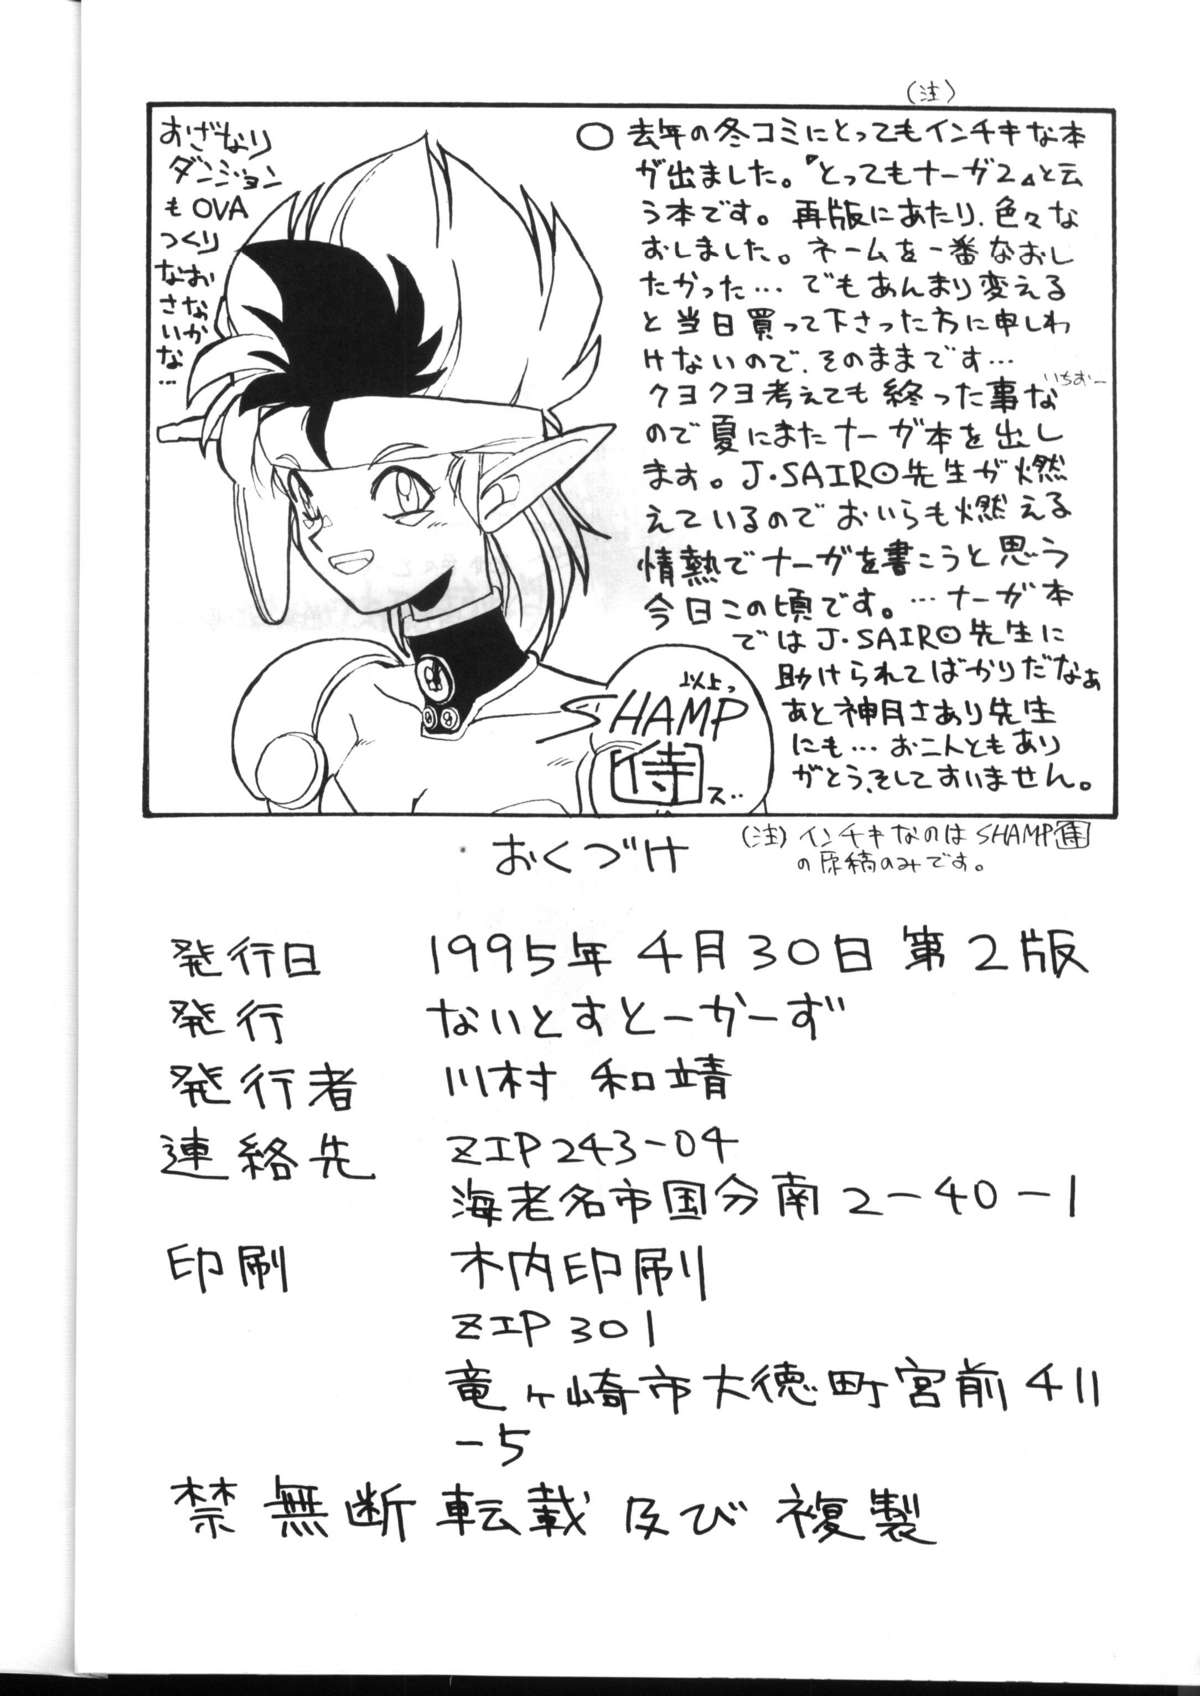 (注)
おざなり
ダンジョン
もOVA
つくり
なおさなかな
さい
…
○ 去年の冬コミにとってもインチキな本
が出ました。『とってもナーガ2』と云
う本です。再版にあたり、色々な
おしました。ネームを一番なおし
たかった…でもあんまり変える
と当日買って下さった方に申しわ
けないので、そのままです…
いちおー
クヨクヨ考えても終った事な
ので夏にまたナーガ本を出し
ます。J・SAIRO先生が燃
えているのでおいらも燃える
情熱でナーガを書こうと思う
今日この頃です。…ナーガ本
ではJ・SAIRO先生に
助けられてばかりだなぁ
あと神月さあり先生
にも…お二人ともあり
がとう、そしてすいません。
以上っ
SHAMP
侍
ズ‥
おくづけ
(注)インチキなのはSHAMP侍
の原稿のみです。
発行日 1995年4月30日第2版
発行 ないとすとーかーず
発行者 川村 和靖
連絡先 ZIP243-04
海老名市国分南2-40-1
印刷 木内印刷
ZIP301
竜ヶ崎市大徳町宮前411
-5
禁無断転載及び複製